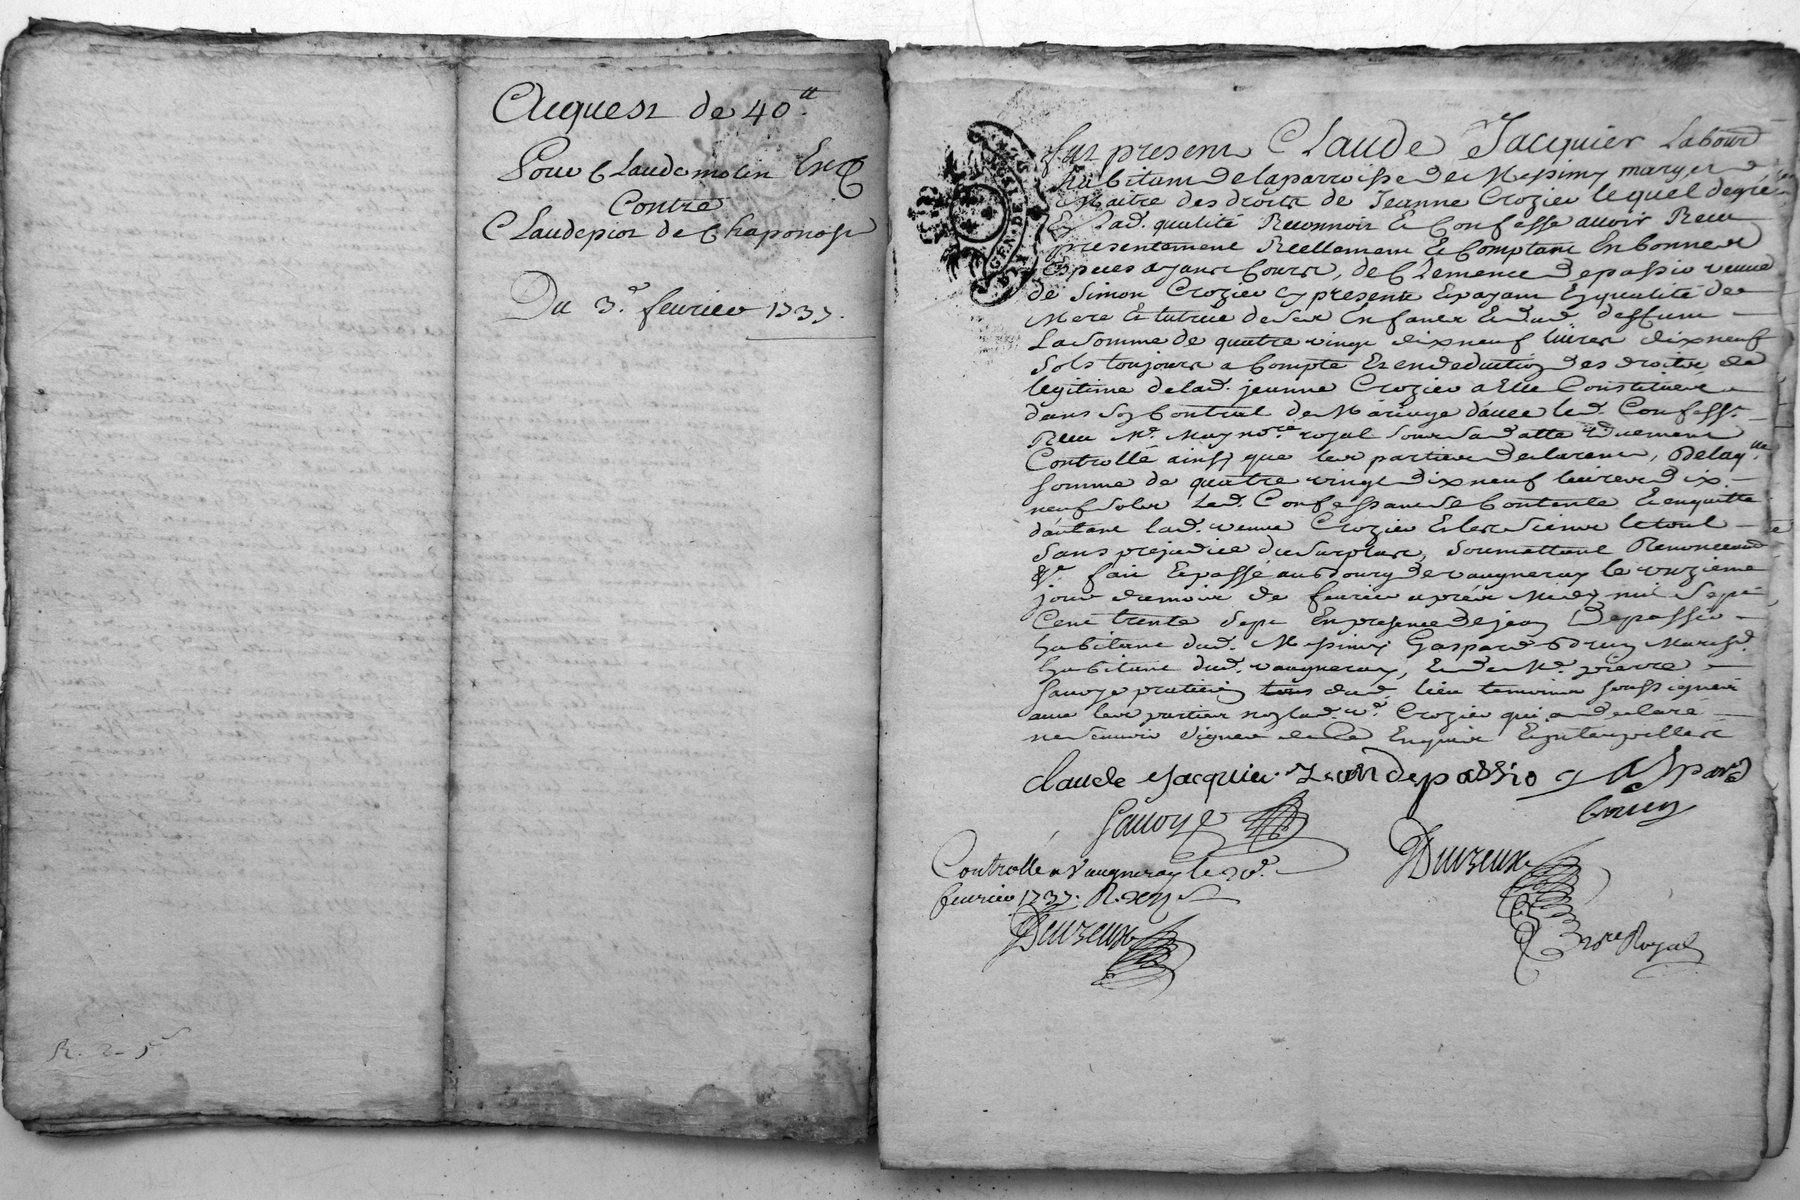 Acquest de 40 ₶.
Pour Claude molin
Contre
Claude pior de Chaponost
Du 3.e fevrier 1737.
R. 2 - 5s
GEN. DE
Fut present Claude Jacquier Labour
habitant de la parroisse de Messimy mary et
Maitre des droits de Jeanne Crozier lequel de gré
Et lad. qualité Reconnoit Et Confesse avoir Receu
presentement Reellement Et Comptant En bonnes
Especes ayant Cours, de Clemence depassio veuve
de Simon Crozier cy presente Et payant En qualité de
Mere Et tutrice de Ses Enfants Et dud. deffunt
La Somme de quatre vingt dixneuf livres dixneuf
Sols toujours a Compte Et en deduction des droits de
legitime de lad. jeanne Crozier a Elle Constitués
dans son Contrat de Mariage d'avec led. Confess.t
Receu Me. May nore. royal Sous Sa datte düement
Controllé ainsy que les parties declarent, De laq.lle
Somme de quatre vingt dixneuf livres dix
neuf Sols Led. Confessant Se Contente Et en quitte
d'autant lad. veuve Crozier Et les Siens le tout
Sans prejudice du Surplus, Soumettant Renonceant
&a. fait Et passé au Bourg de vaugneray le unzieme
jour du mois de fevrier apres Midy mil Sept
Cent trente Sept En presence de jean Depassio
habitant dud. Messimy Gaspard Brun March.d
habitant dud. vaugneray, Et de Me. pierre
Savoye praticien tous dud. lieu temoins Soussignés
avec les parties non lad. ve. Crozier qui a declaré
ne Scavoir Signer de Ce Enquise Et Interpellée
claude Jacquier Jean depassio gaspard
brun
Savoye
Controllé a Vaugneray le
fevrier 1737. R.
Deurzeux
Deurzeux
nore Royal